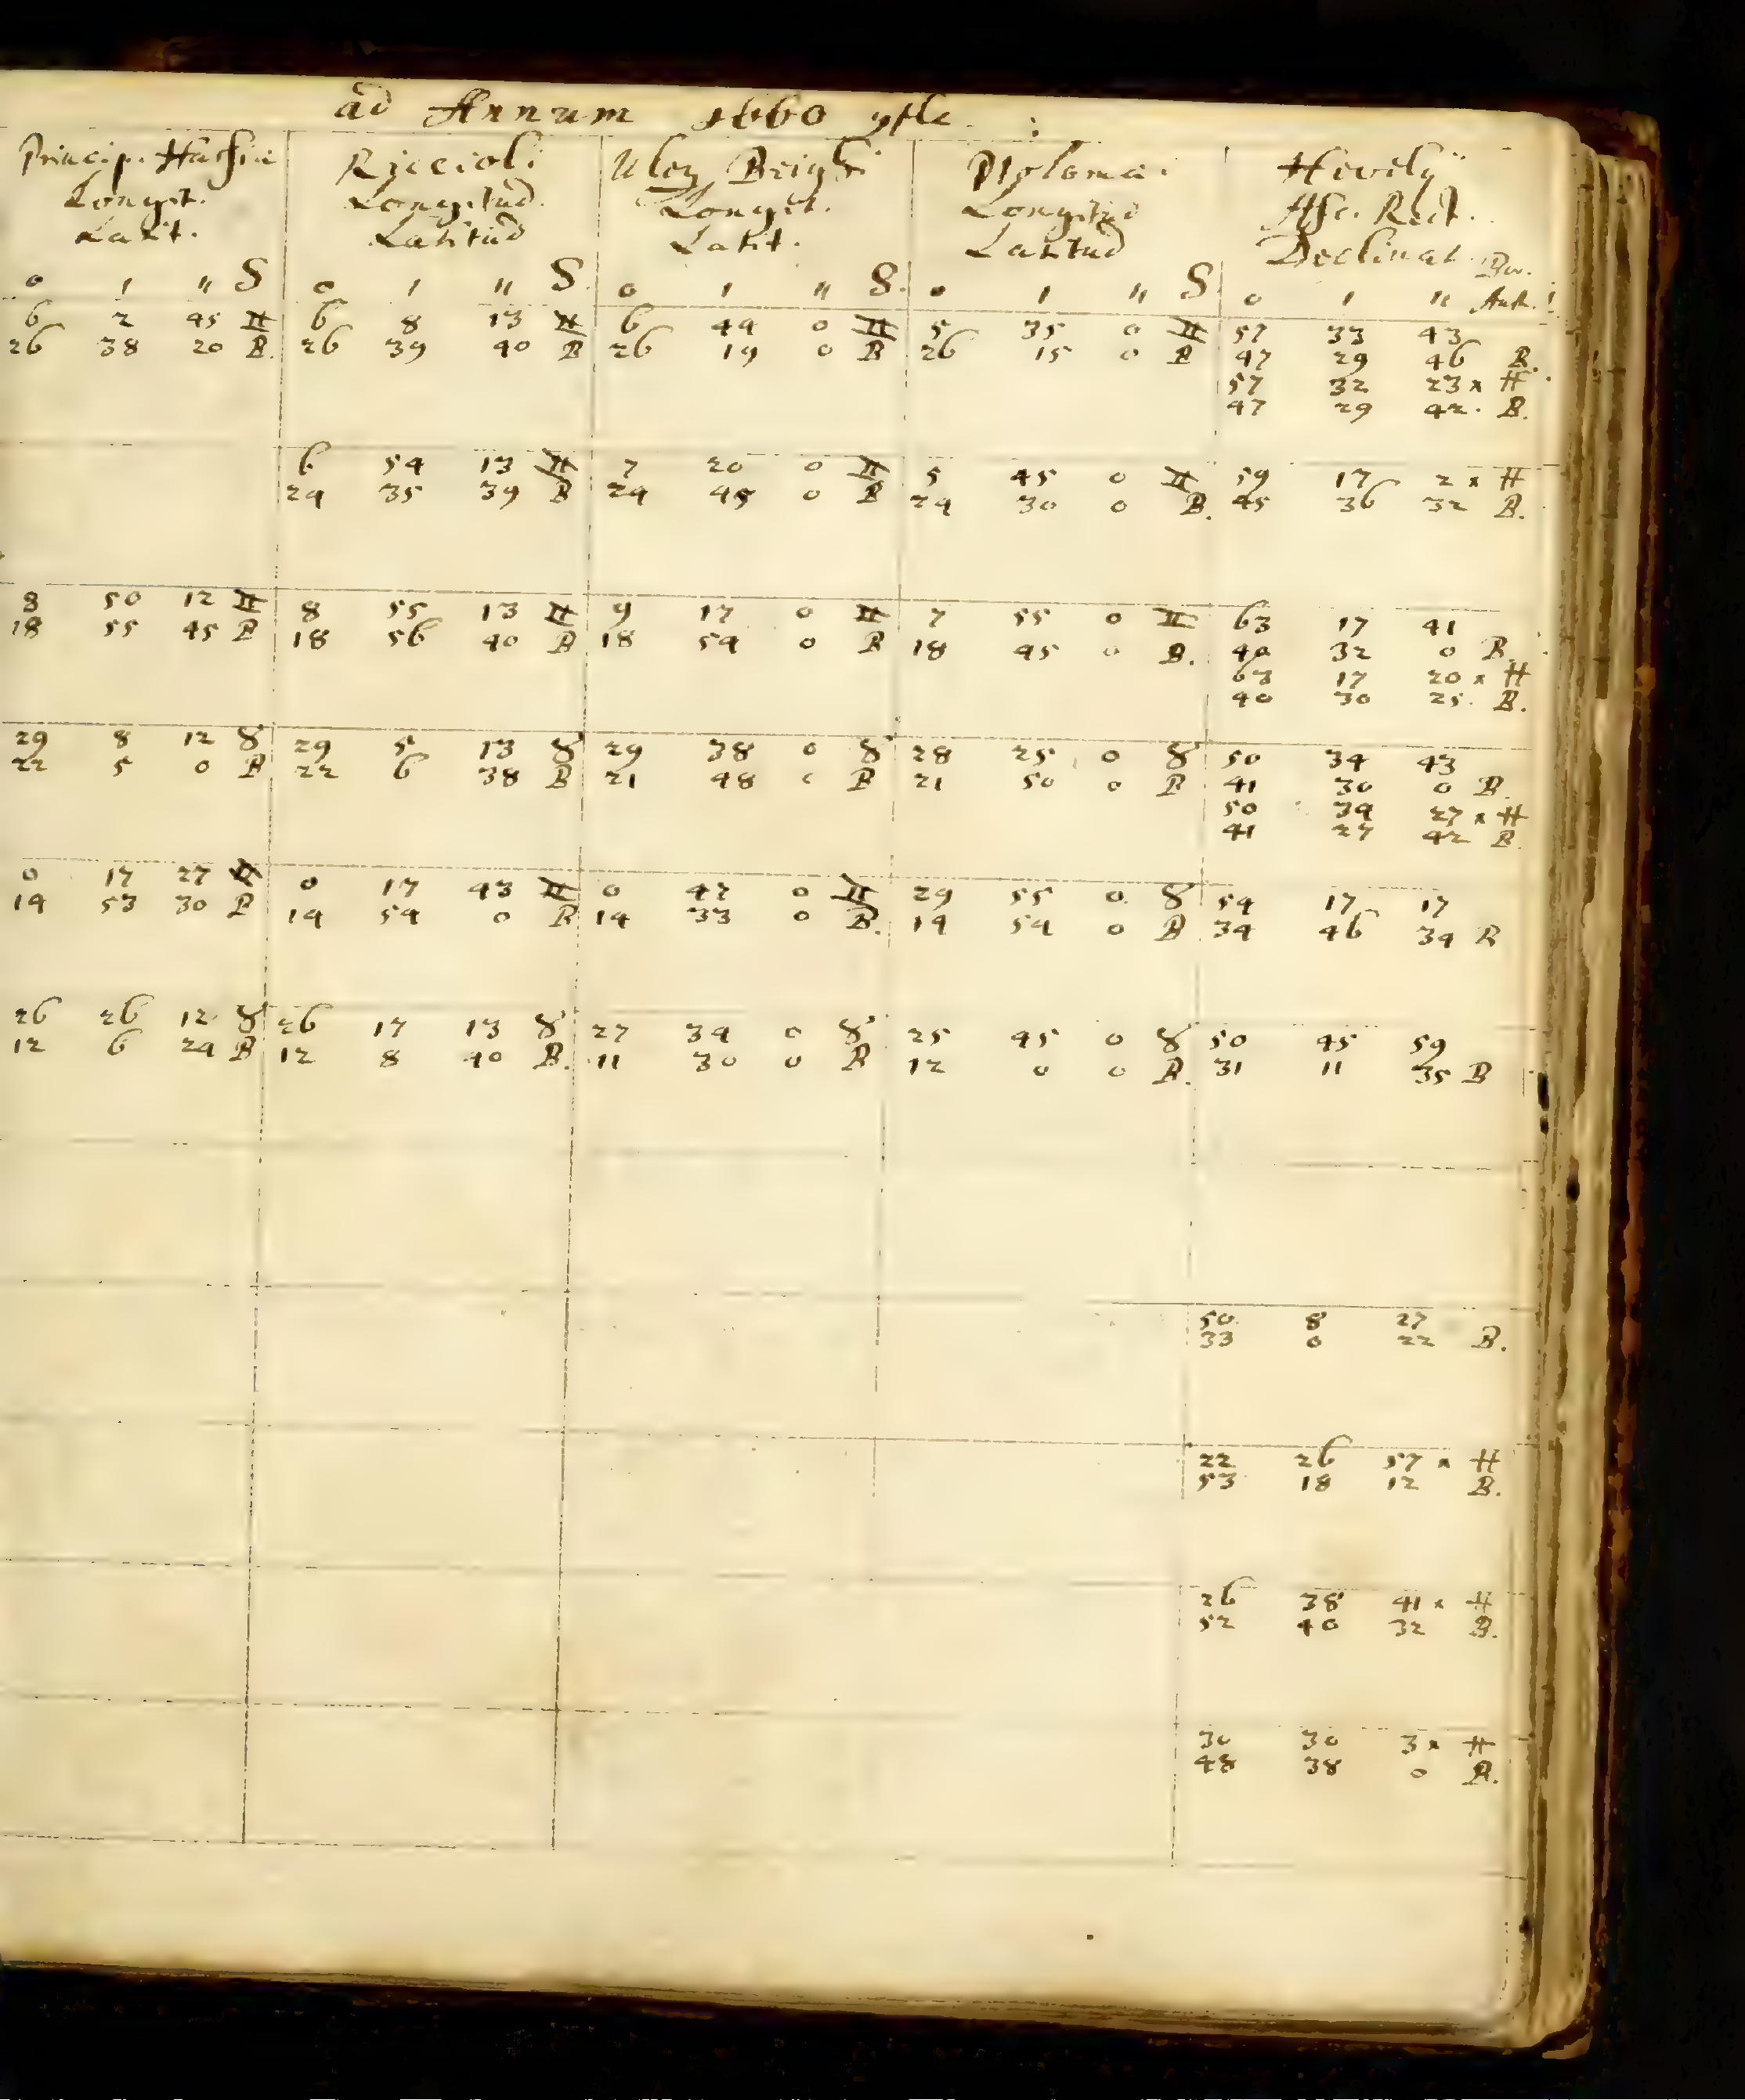 ad Annum 1660 ỹtle. :
Princip. Hassiæ | Riccioli | Uleg Beighi | Ptolomæi | Hevelij
Longit. | Longitud. | Longit. | Longitud | Asc. Rect.
Latit. | Latitud | Latit. | Latitud | Declinat. Bor.
° ' " S | ° ' " S. | ° ' " S. | ° ' " S. | ° ' " Aust.
6 2 45 ♊ | 6 8 13 ♊ | 6 44 0 ♊ | 5 35 0 ♊ | 57 33 43
26 38 20 B. | 26 39 40 B | 26 19 0 B | 26 15 0 B | 47 29 46 B.
57 32 23 x H
47 29 42. B.
6 54 13 ♊ | 7 20 0 ♊ | 5 45 0 ♊ | 59 17 2 x H
24 35 39 B | 24 45 0 B | 24 30 0 B. | 45 36 32 B.
8 50 12 ♊ | 8 55 13 ♊ | 9 17 0 ♊ | 7 55 0 ♊ | 63 17 41
18 55 45 B | 18 56 40 B | 18 54 0 B | 18 45 0 B. | 40 32 0 B.
63 17 20 x H
40 30 25. B.
29 8 12 ♉ | 29 5 13 ♉ | 29 38 0 ♉ | 28 25 0 ♉ | 50 34 43
22 5 0 B | 22 6 38 B | 21 48 0 B | 21 50 0 B | 41 30 0 B.
50 34 27 x H
41 27 42 B.
0 17 27 ♊ | 0 17 43 ♊ | 0 47 0 ♊ | 29 55 0 ♉ | 54 17 17
14 53 30 B | 14 54 0 B | 14 33 0 B. | 14 54 0 B | 34 46 34 B
26 26 12 ♉ | 26 17 13 ♉ | 27 34 0 ♉ | 25 45 0 ♉ | 50 45 59
12 6 24 B | 12 8 40 B. | 11 30 0 B | 12 0 0 B. | 31 11 35 B
50 8 27
33 0 22 B.
22 26 57 x H
53 18 12 B.
26 38 41 x H
52 40 32 B.
30 30 3 x H
48 38 0 B.